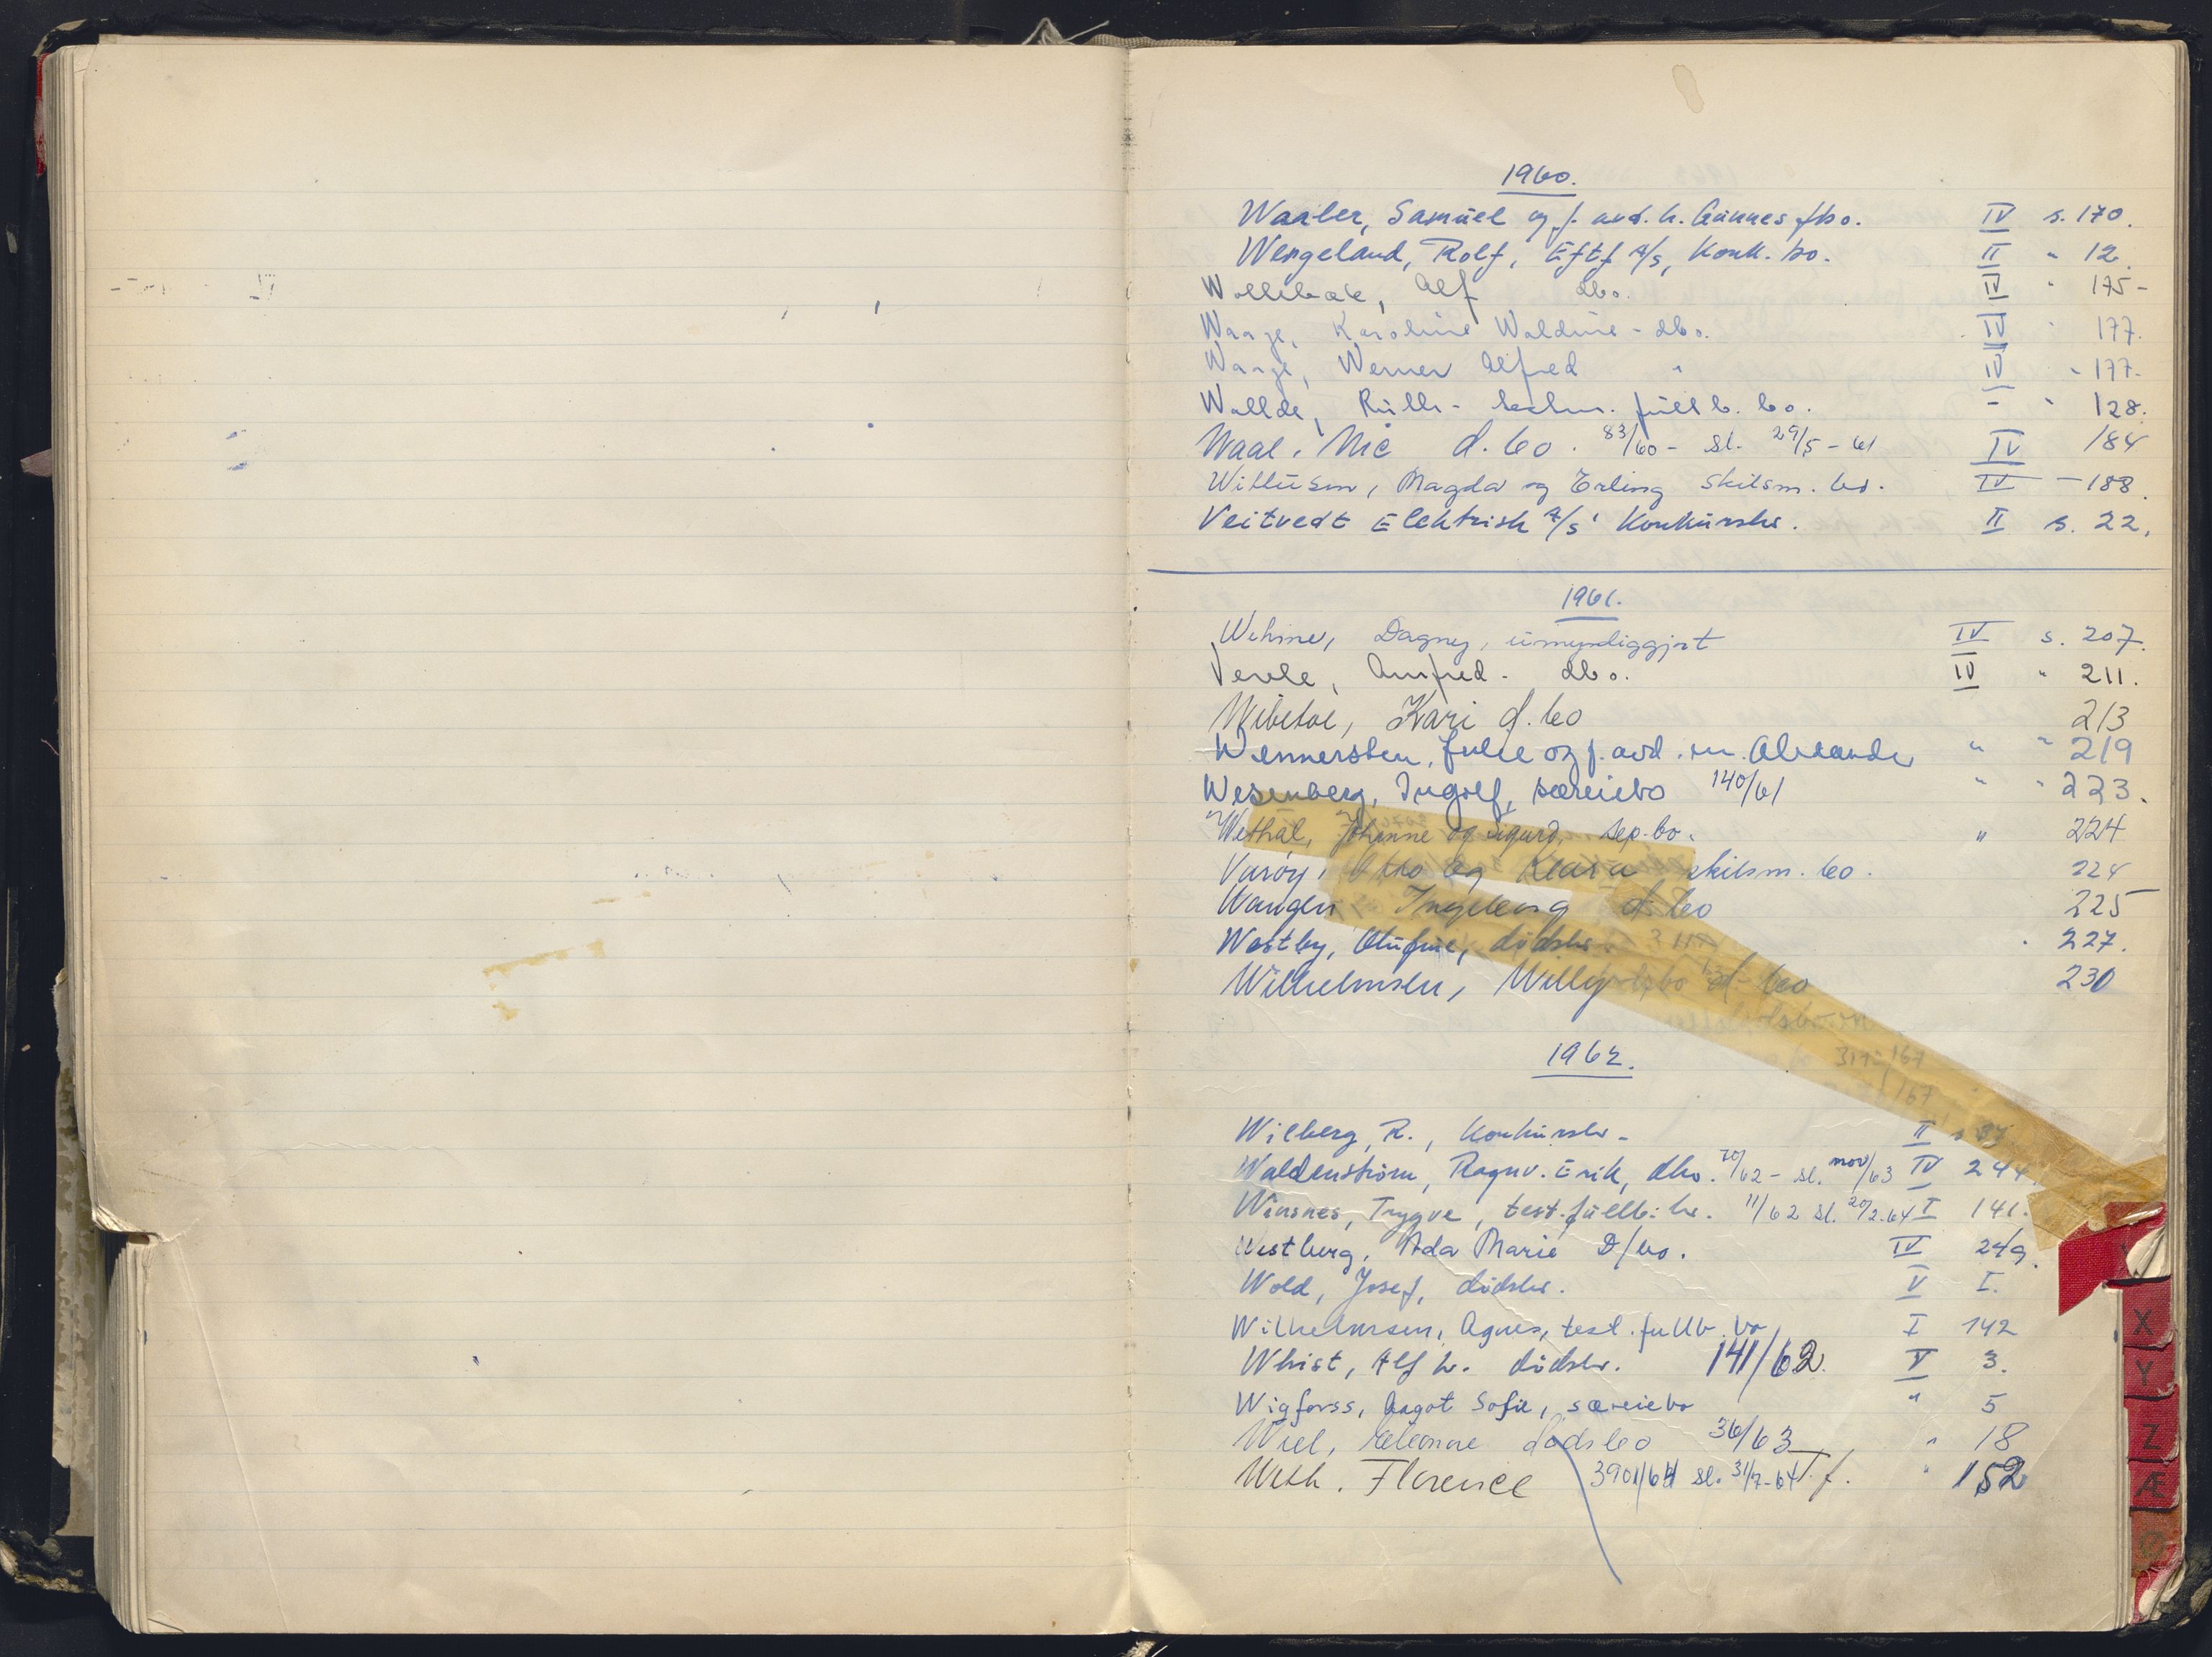 1960.
Waaler, Samuel og f. avd. h. Gunnes fbo. IV s. 170.
Wergeland, Rolf, Eftf A/S, Konk. bo. II " 12.
Wollebæk, Alf dbo. IV " 175-
Waage, Karoline Waldine - dbo. IV " 177.
Waage, Werner Alfred " IV " 177.
Wallde, Ruth - fullb. bo. - " 128.
Waal, Nic d. bo. 83/60 - sl. 29/5 - 61 IV 184
Magda og Erling skilsm. bo. IV - 188.
Veitvedt Elektrisk A/S' Konkursbo. II s. 22.
1961.
Wehme, Dagny, umyndiggjort IV s. 207.
Arnfred - dbo. IV " 211.
Wibetoe, Kari d. bo 213
Wennersten, Julie og f. avd. m. Alexander " " 219
Wesenberg, Ingolf, særeiebo 140/61 " " 223.
Wethal, Johanne og Sigurd, sep. bo. " 224
Varøy, Otto og Klara, skilsm. bo. 224
Wangen Ingeborg d. bo 225
Westby, Olufine, dødsbo. 227.
Wilhelmsen, Willy d. bo 230
1962.
317 - 167
167
Wiberg, R., Konkursbo - II s
Waldenstrøm, Ragnv. Erik, dbo. 70/62 - sl. nov/63 IV 244.
Winsnes, Trygve, test. fullb. bo. 11/62 sl. 20/2-64 I 141.
Westberg, Ada Marie D/bo. IV 249.
Wold, Josef, dødsbo. V I.
Wilhelmsen, Agnes, test. fullb. bo I 142
Whist, Alf L. dødsbo. 141/62. V 3.
Wigforss, Aagot Sofie, særeiebo " 5
Wiel, Eleonore dødsbo 36/63 " 18
Weth. Florence 3901/64 sl. 31/7-64 T. f. " 152
X
Y
Z
Æ
Ø